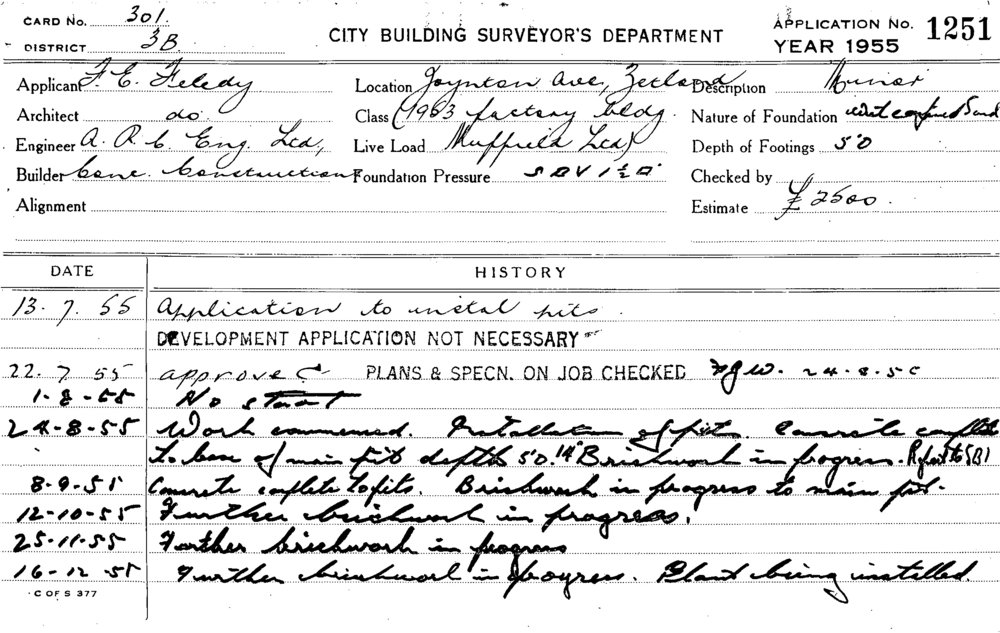 CARD No. 301.
DISTRICT 3B
CITY BUILDING SURVEYOR'S DEPARTMENT
APPLICATION No. 1251
YEAR 1955
Applicant F. E. Feledy
Location Joynton Ave, Zetland
Description Minor
Architect do
Class (1963 factory bldg.
Nature of Foundation Sand
Engineer A. R. C. Eng. Ltd,
Live Load Nuffield Ltd)
Depth of Footings 5'0
Builder Conc. Constructions
Foundation Pressure
Checked by
Alignment
Estimate £2500.
DATE HISTORY
13.7.55 Application to instal pits.
DEVELOPMENT APPLICATION NOT NECESSARY
22.7.55 approved PLANS & SPECN. ON JOB CHECKED 24.8.55
1-8-55 No start
24-8-55 Work commenced. Installation of pits. Concrete complete
to base of main pit depth 5'0. 14" Brickwork in progress.
8-9-55 Concrete complete to pits. Brickwork in progress to main pit.
12-10-55 Further brickwork in progress.
25-11-55 Further brickwork in progress
16-12-55 Further brickwork in progress. Plant being installed.
C OF S 377